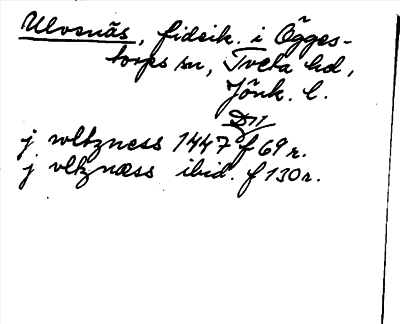 Ulvsnäs, fideik. i Ögges-
torps sn, Tveta hd,
Jönk. l.
D 11
j wlkzness 1447 f 69 r.
j vlkznæss ibid. f 130 r.